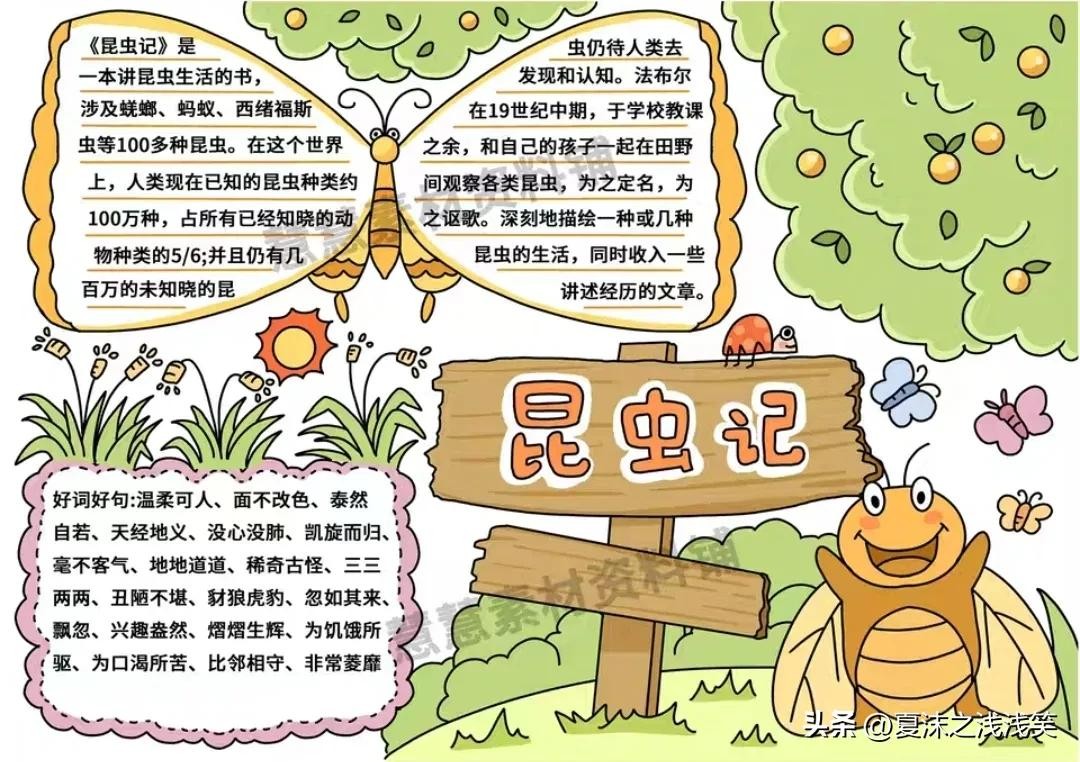 《昆虫记》是
一本讲昆虫生活的书，
涉及蜣螂、蚂蚁、西绪福斯
虫等100多种昆虫。在这个世界
上，人类现在已知的昆虫种类约
100万种，占所有已经知晓的动
物种类的5/6;并且仍有几
百万的未知晓的昆
虫仍待人类去
发现和认知。法布尔
在19世纪中期，于学校教课
之余，和自己的孩子一起在田野
间观察各类昆虫，为之定名，为
之讴歌。深刻地描绘一种或几种
昆虫的生活，同时收入一些
讲述经历的文章。
昆虫记
好词好句:温柔可人、面不改色、泰然
自若、天经地义、没心没肺、凯旋而归、
毫不客气、地地道道、稀奇古怪、三三
两两、丑陋不堪、豺狼虎豹、忽如其来、
飘忽、兴趣盎然、熠熠生辉、为饥饿所
驱、为口渴所苦、比邻相守、非常萎靡
慧慧素材资料铺
慧慧素材资料铺
头条 @夏沫之浅浅笑